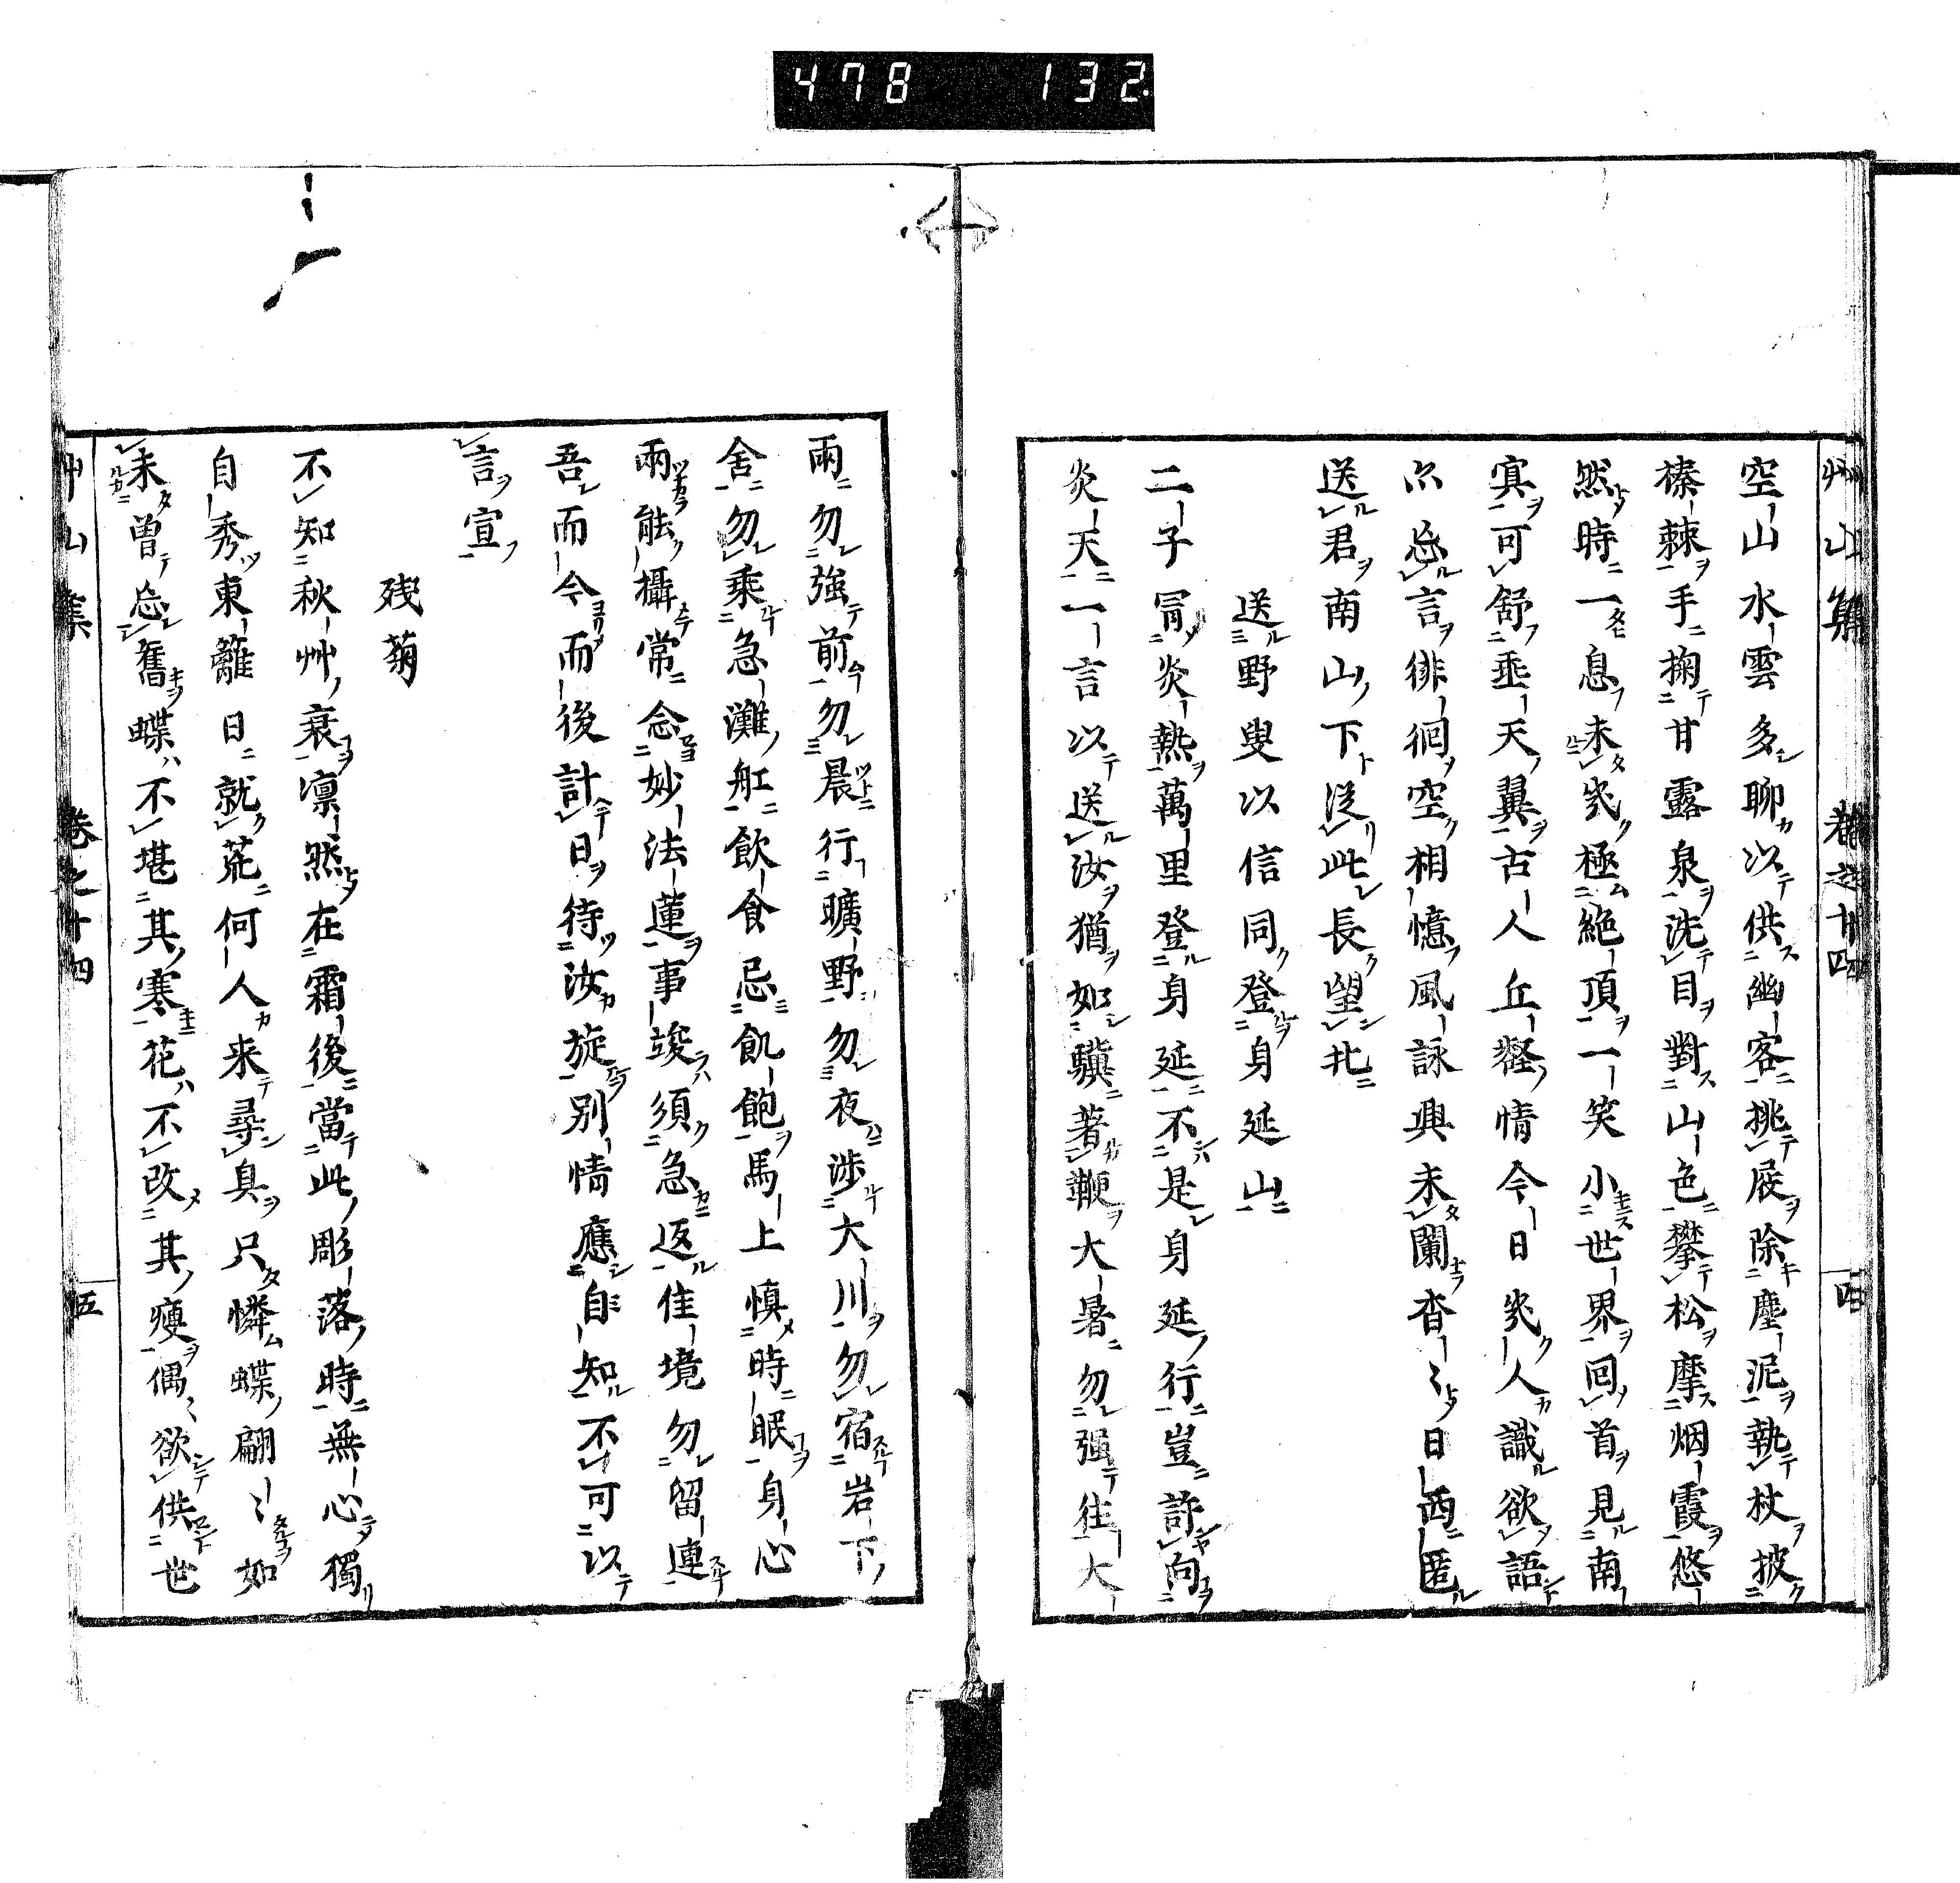 478 132
艸山集 卷之十四 四
空山水雲多聊以供幽客挑屐除塵泥執杖披
榛棘手掬甘露泉洗目對山色攀松摩烟霞悠
然時一息未幾極絶頂一笑小世界回首見南
寘可舒垂天翼古人丘壑情今日幾人識欲語
尓忘言徘徊空相憶風詠興未闌杳〻日西匿
送君南山下從此長望北
送野叟以信同登身延山
二子冐炎熱萬里登身延不是身延行豈許向
炎天一言以送汝猶如驥著鞭大暑勿强往大
雨勿強前勿晨行曠野勿夜渉大川勿宿岩下
舍勿乘急灘舡飲食忌飢飽馬上慎時眠身心
兩能攝常念妙法蓮事竣須急返佳境勿留連
吾而今而後計日待汝旋别情應自知不可以
言宣
残菊
不知秋艸衰凛然在霜後當此彫落時無心獨
自秀東籬日就荒何人来尋臭只憐蝶翩〻如
未曽忘舊蝶不堪其寒花不改其痩偶〻欲供世
艸山集 卷之十四 五